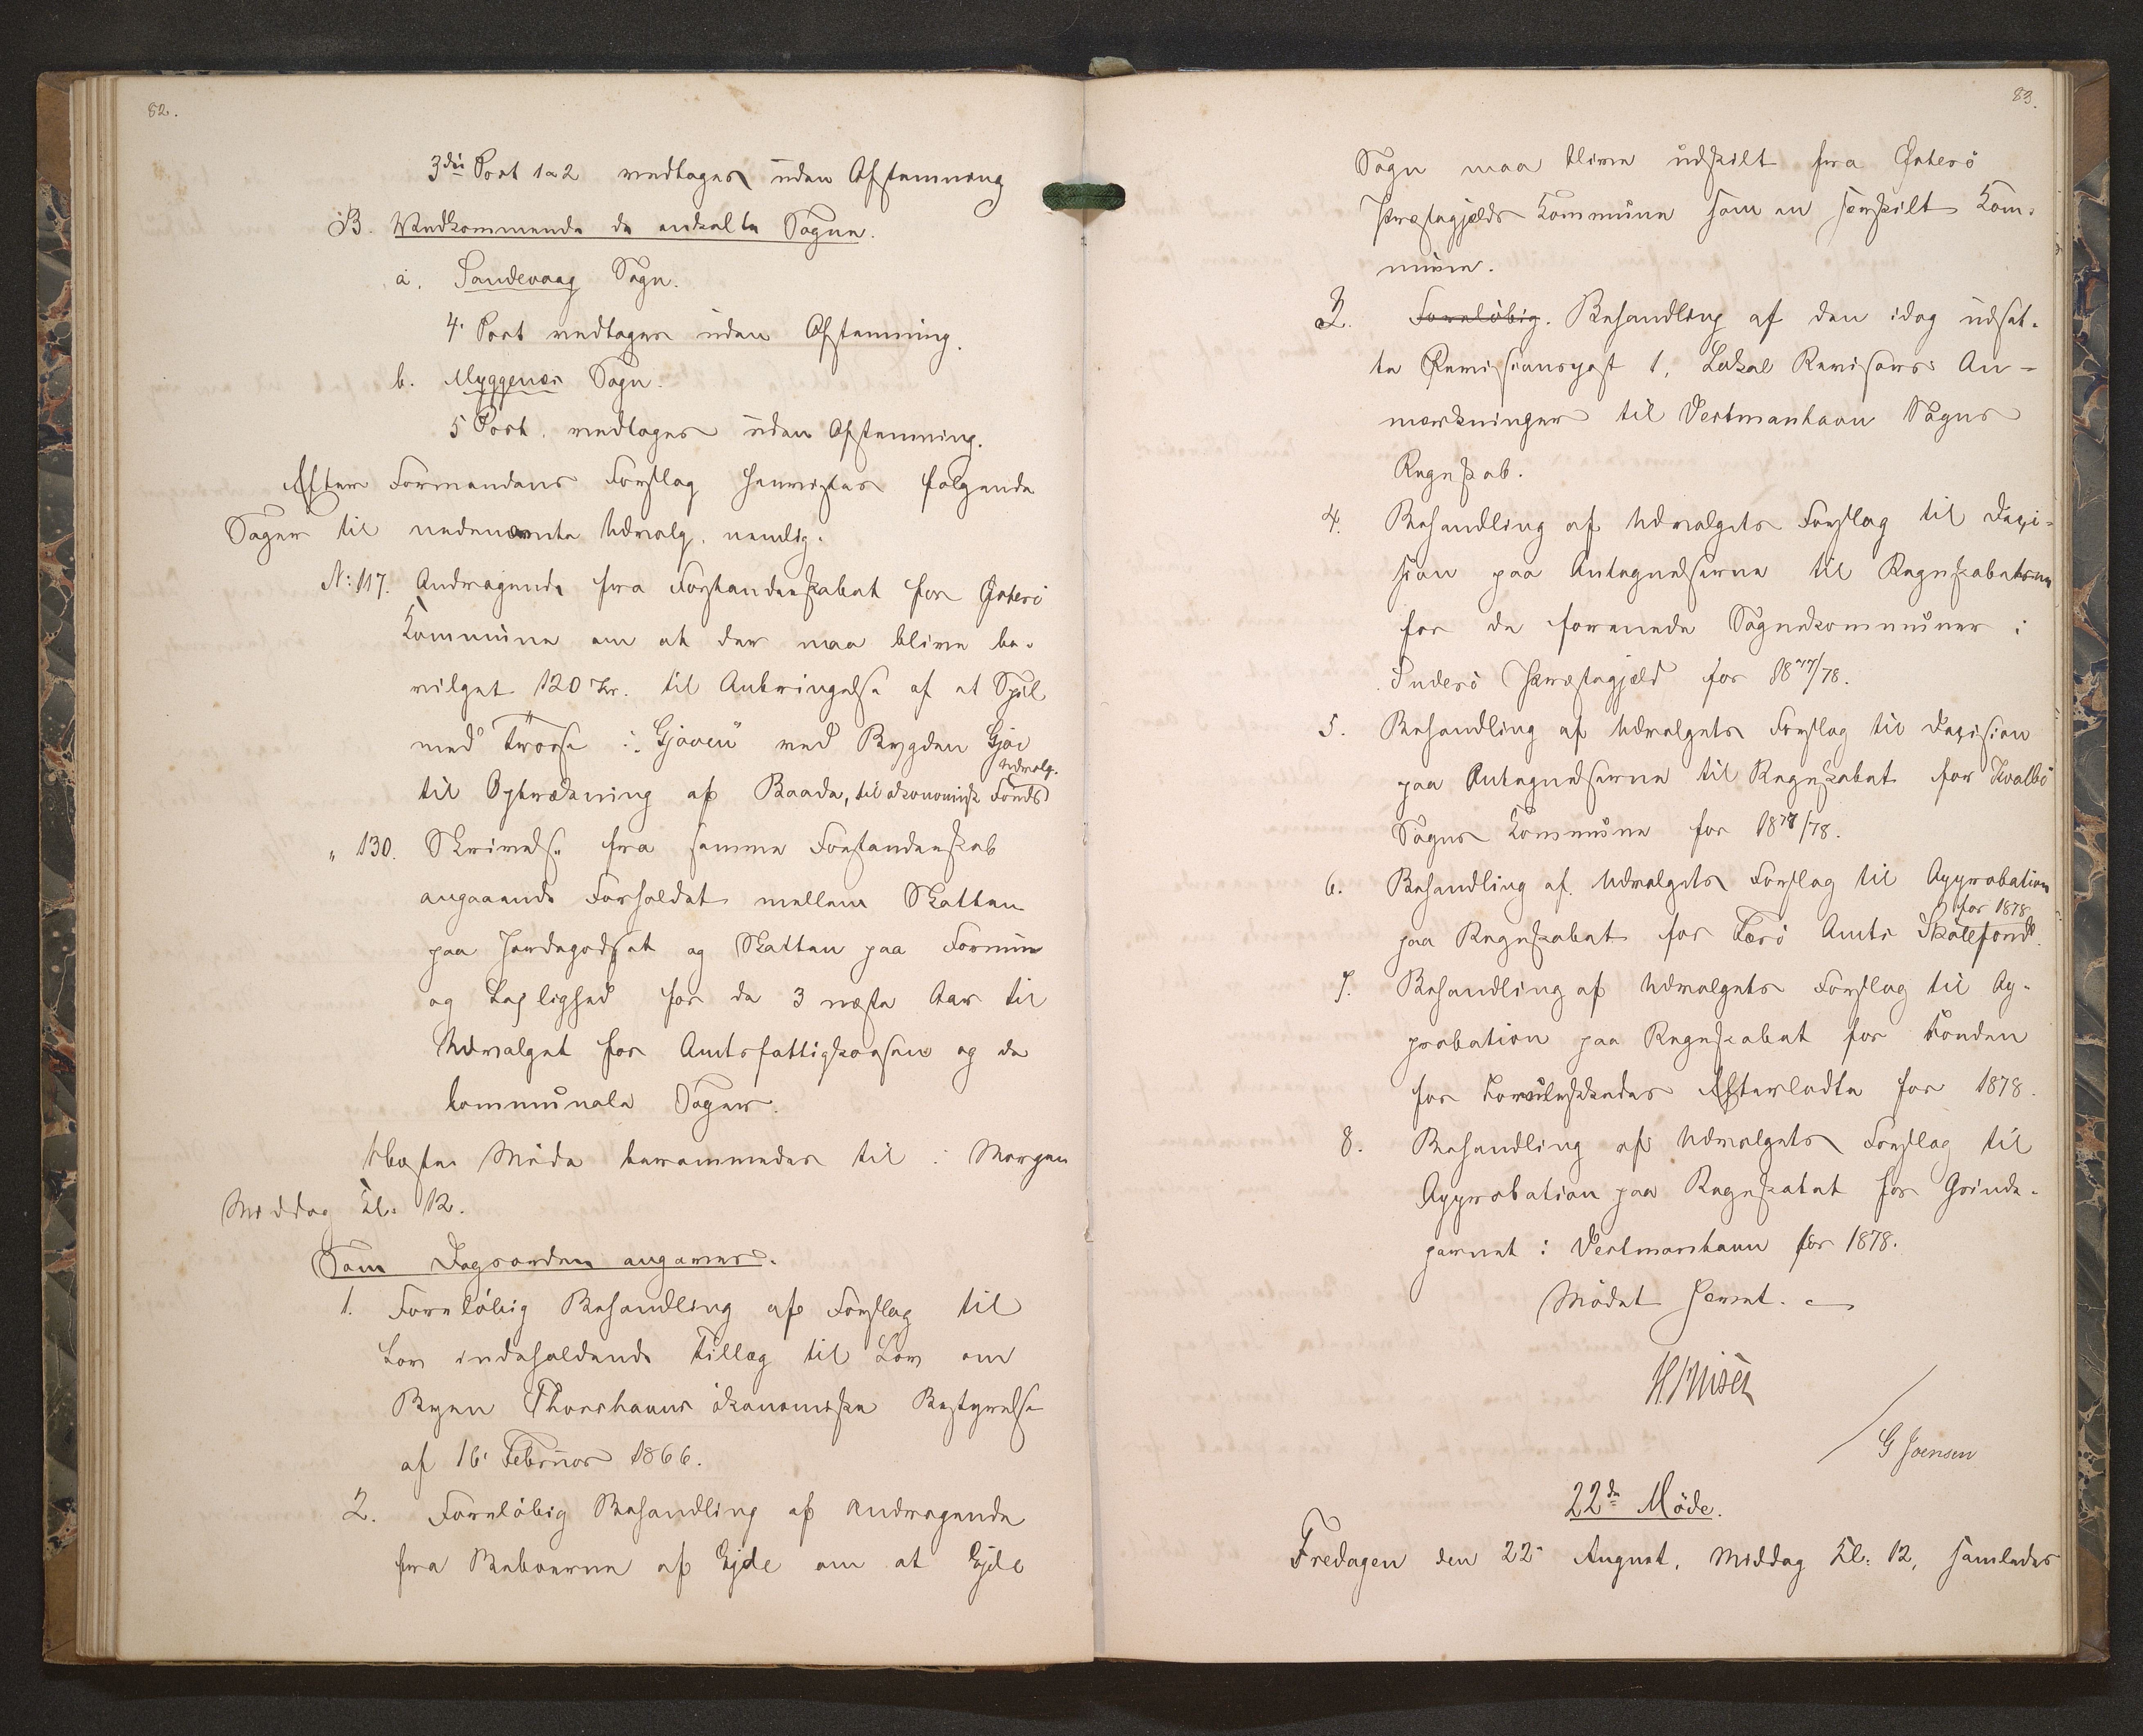 82.
3die Post 1a2 vedtages uden Afstemning
B. Vedkommende de enkelte Sogne.
a. Sandevaag Sogn.
4. Post vedtages uden Afstemning.
b. Myggenæs Sogn.
5 Post. vedtages uden Afstemning.
Efter Formandens Forslag henvistes følgende
Sager til nedennævnte Udvalg, nemlig:
N: 117. Andragende fra Forstanderskabet for Østerö
Kommune om at der maa blive be-
vilget 120 Kr. til Anbringelse af et Spil
med Trosse i "Gjaaen" ved Bygden Gjov
Udvalg.
til Optrækning af Baade, til økonomisk Fonds
" 130. Skrivelse fra samme Forstanderskab
angaaende Forholdet mellem Skatten
paa Jordegodset og Skatten paa Formue
og Leilighed for de 3 næste Aar til
Udvalget for Amtsfattigkassen og de
kommunale Sager.
Næste Møde berammedes til i Morgen
Middag Kl. 12.
Som Dagsorden angaves.
1. Foreløbig Behandling af Forslag til
Lov indeholdende Tillæg til Lov om
Byen Thorshavns økonomiske Bestyrelse
af 16. Februar 1866.
2. Foreløbig Behandling af Andragende
fra Beboerne af Ejde om at Ejde
83.
Sogn maa blive udskilt fra Østerö
Præstegjælds Kommune som en særskilt Kom-
mune.
3. Foreløbig. Behandling af den idag udsat-
te Revisionspost 1, Lokal Revisors An-
mærkninger til Vestmanhavn Sogns
Regnskab.
4. Behandling af Udvalgets Forslag til Deci-
sion paa Antegnelserne til Regnskaberne
for de forenede Sognekommuner i
Suderö Præstegjæld for 1877/78.
5. Behandling af Udvalgets Forslag til Decision
paa Antegnelserne til Regnskabet for Kvalbö
Sogns Kommune for 1877/78.
6. Behandling af Udvalgets Forslag til Approbation
for 1878
paa Regnskabet for Færö Amts Skolefond.
7. Behandling af Udvalgets Forslag til Ap-
probation paa Regnskabet for Fonden
for Forulykkedes Efterladte for 1878.
8. Behandling af Udvalgets Forslag til
Approbation paa Regnskabet for Grinde-
garnet i Vestmanhavn for 1878.
Mødet hævet.
G Joensen
22de Möde.
Fredagen den 22. August, Middag Kl. 12, samledes